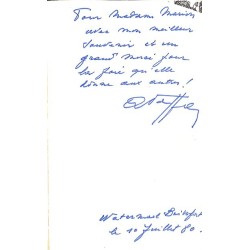 Pour Madame Marion
avec mon meilleur
souvenir et un
grand merci pour
la joie qu'elle
donne aux autres!
Watermael Boitsfort
le 10 juillet 80.